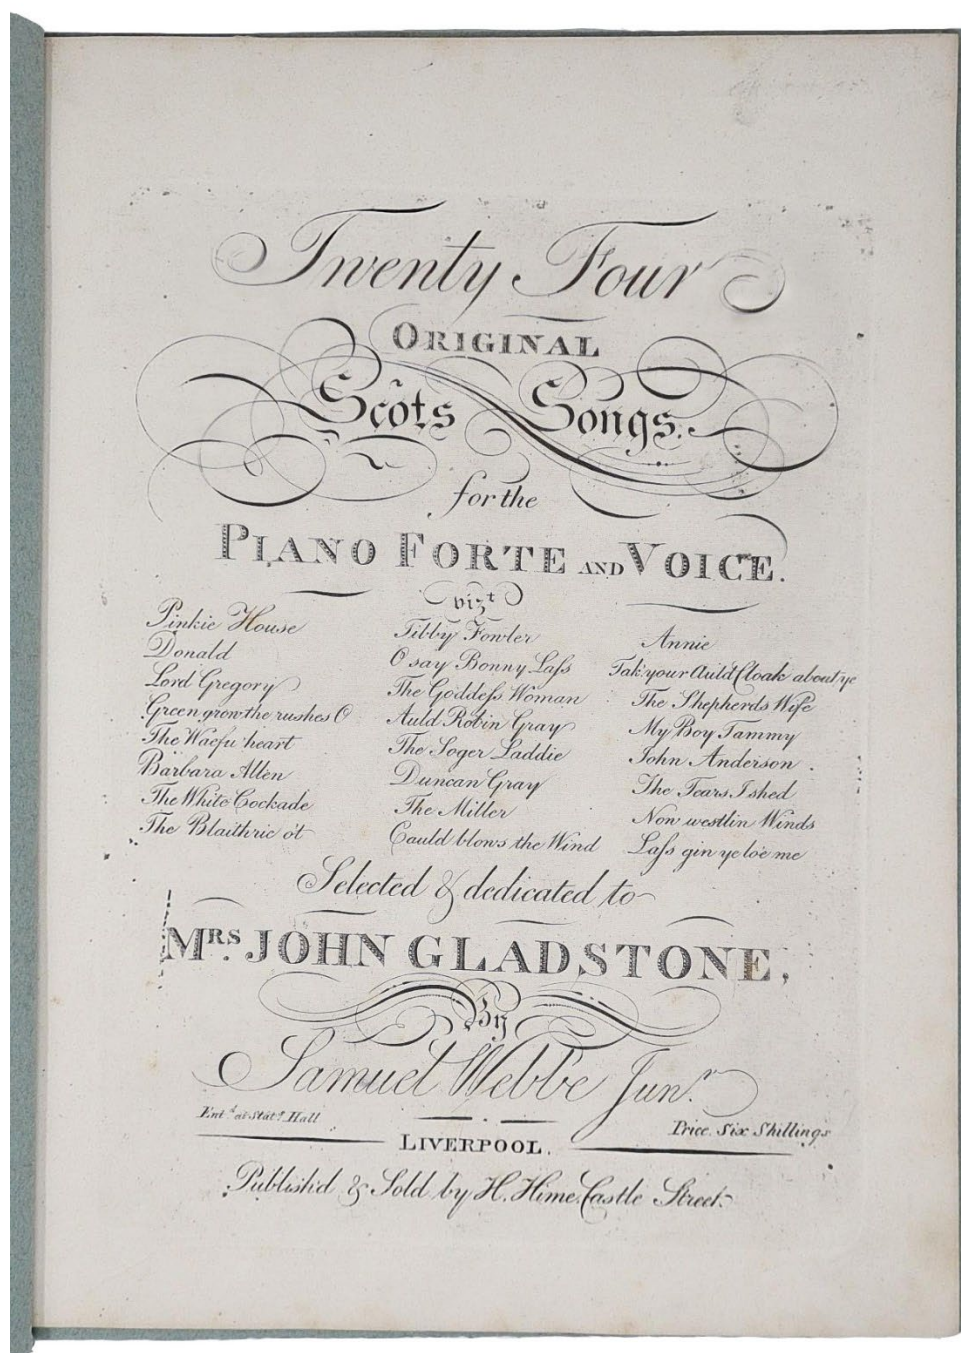 Twenty Four
ORIGINAL
Scots Songs.
for the
PIANO FORTE AND VOICE.
vizt
Pinkie House
Donald
Lord Gregory
Green grow the rushes O
The Waefu' heart
Barbara Allen
The White Cockade
The Blaithrie o't
Tibby Fowler
O say Bonny Laſs
The Goddeſs Woman
Auld Robin Gray
The Soger Laddie
Duncan Gray
The Miller
Cauld blows the Wind
Annie
Tak' your Auld Cloak about ye
The Shepherds Wife
My Boy Tammy
John Anderson
The Tears I shed
Now westlin Winds
Laſs gin ye lo'e me
Selected & dedicated to
MRS. JOHN GLADSTONE,
By
Samuel Webbe Junr.
Entd. at Stats. Hall
Price. Six Shillings
LIVERPOOL.
Publish'd & Sold by H. Hime Castle Street.